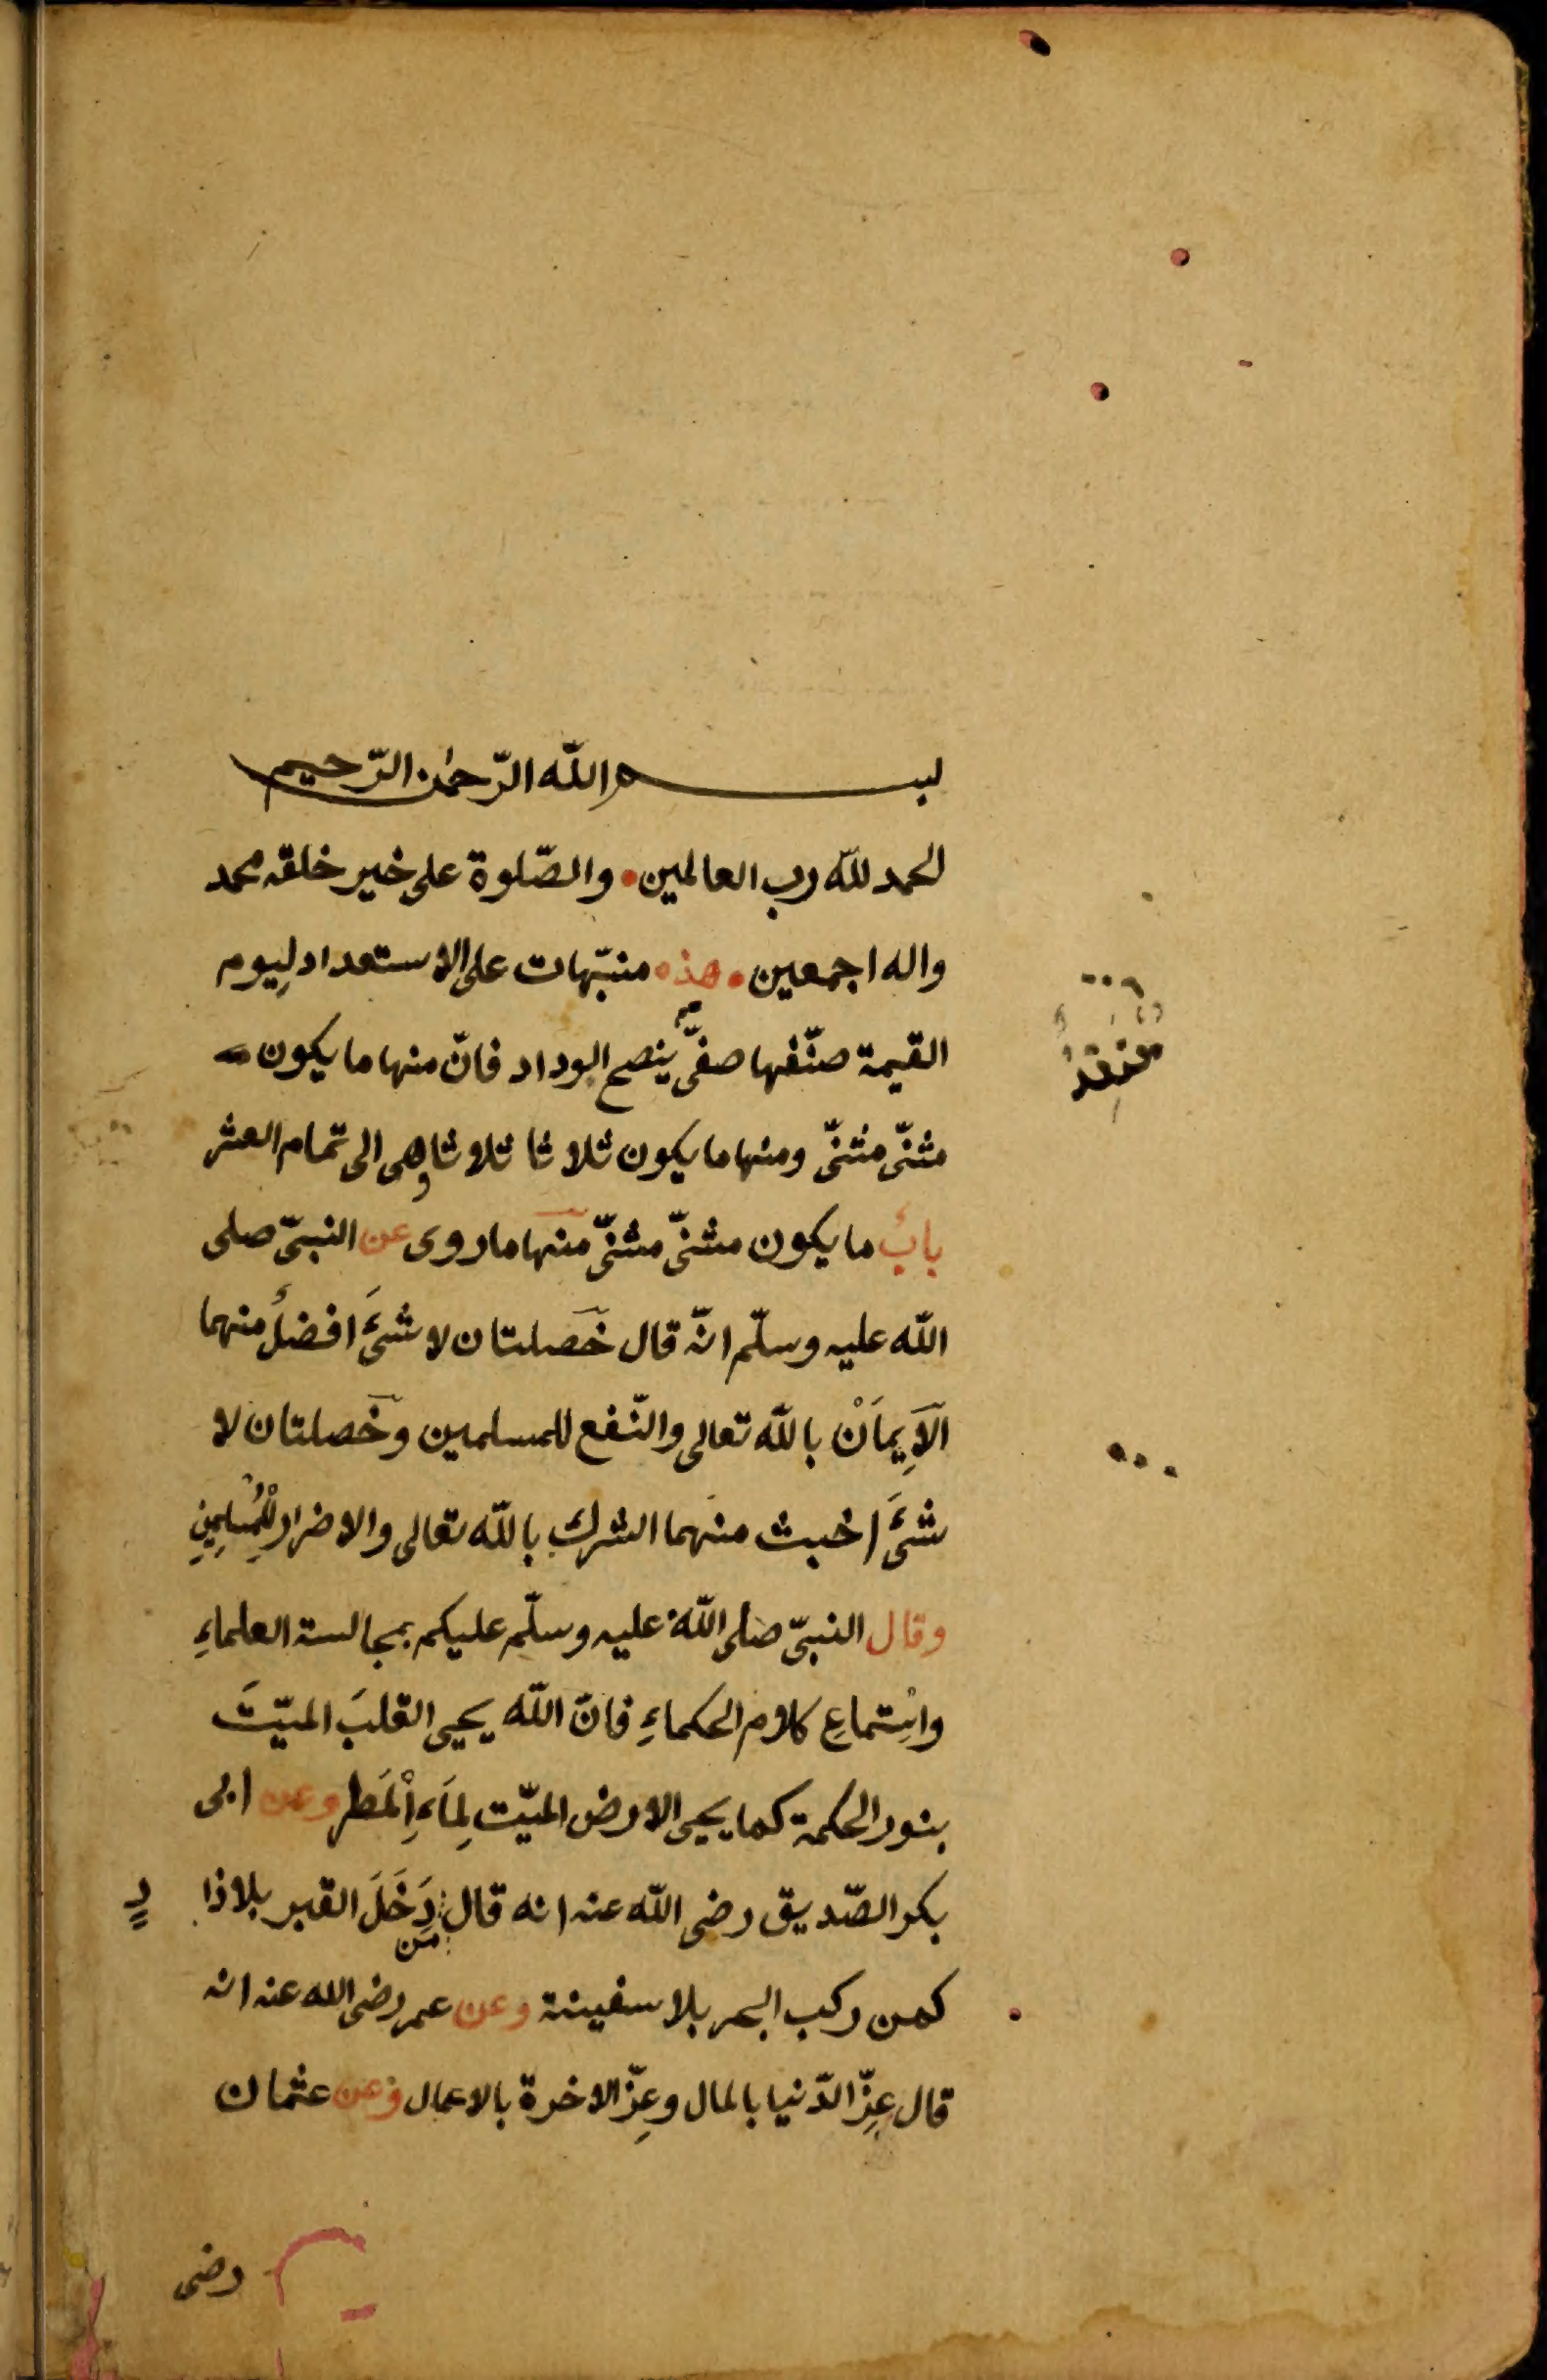 بسم الله الرّحمٰن الرّحيم
الحمد لله رب العالمين • والصّلوة على خير خلقه محمد
واله اجمعين • هذه منبّهات على الاستعداد لِيوم
القيمة صنّفها صفىّ ينصح الوداد فانّ منها ما يكون
مثنّى مثنّى ومنها ما يكون ثلاثا ثلاثا وهى الى تمام العشر
بابُ ما يكون مثنّى مثنّى منها ما روى عن النبىّ صلى
الله عليه وسلّم انّه قال خَصلتان لا شئَ افضلُ منهما
اَلاِيمَانْ بالله تعالى والنّفع للمسلمين وخَصلتان لا
شئَ اخبث منهما الشرك بالله تعالى والاضرار لِلْمُسْلِمِينِ
وقال النبىّ صلى اللهُ عليه وسلّم عليكم بمجالسة العلماءِ
واسْتِماعِ كلام الحكماءِ فانّ الله يحيى القلبَ الميّتَ
بنور الحكمة كما يحيى الارض الميّت لِمَاءِ اْلمَطر وعن ابى
بكر الصّديق رضى الله عنه انه قال من دَخَلَ القبر بلا زا
دٍ
كمن ركب البحر بلا سفينة وعن عمر رضى الله عنه انه
قال عِزّ الدّنيا بالمال وعِزّ الاخرة بالاعمال وعن عثمان
رضى